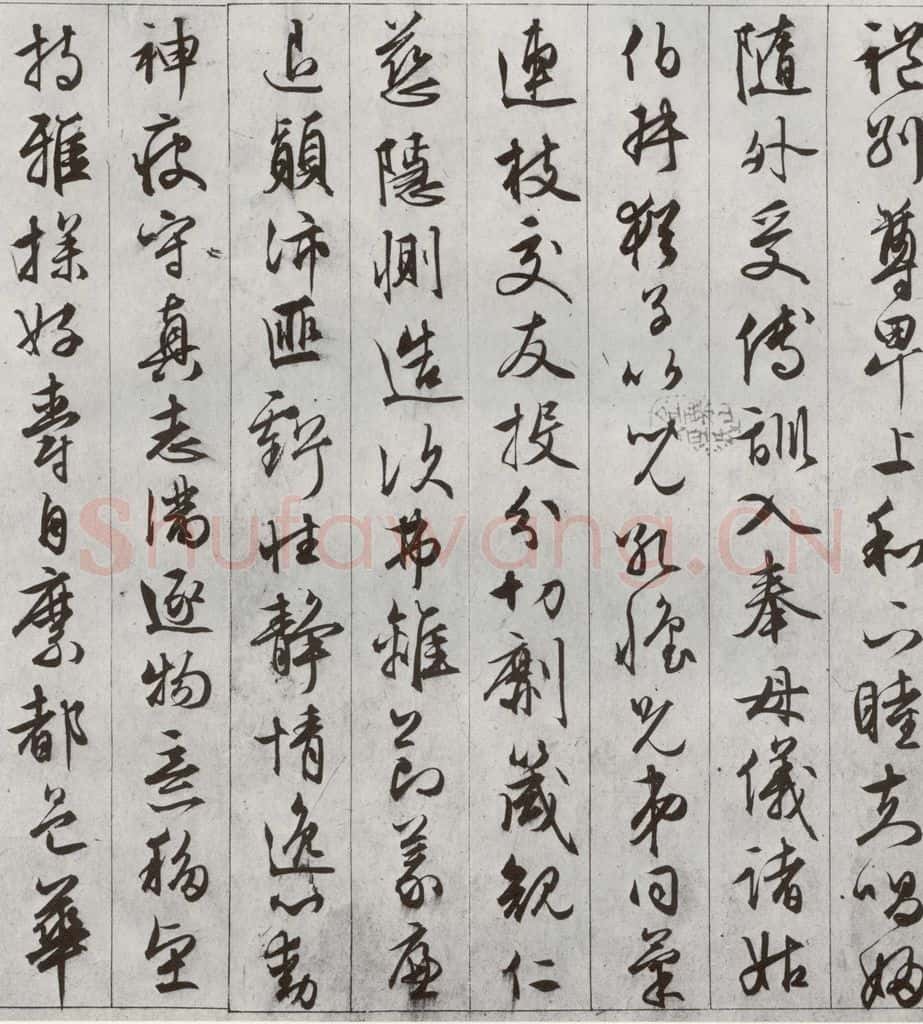 禮別尊卑上和下睦夫唱婦
隨外受傅訓入奉母儀諸姑
伯叔猶子比兒孔懷兄弟同氣
連枝交友投分切劘箴規仁
慈隱惻造次弗離節義廉
退顛沛匪虧性靜情逸心動
神疲守真志滿逐物意移堅
持雅操好爵自縻都邑華
Shufawang.CN